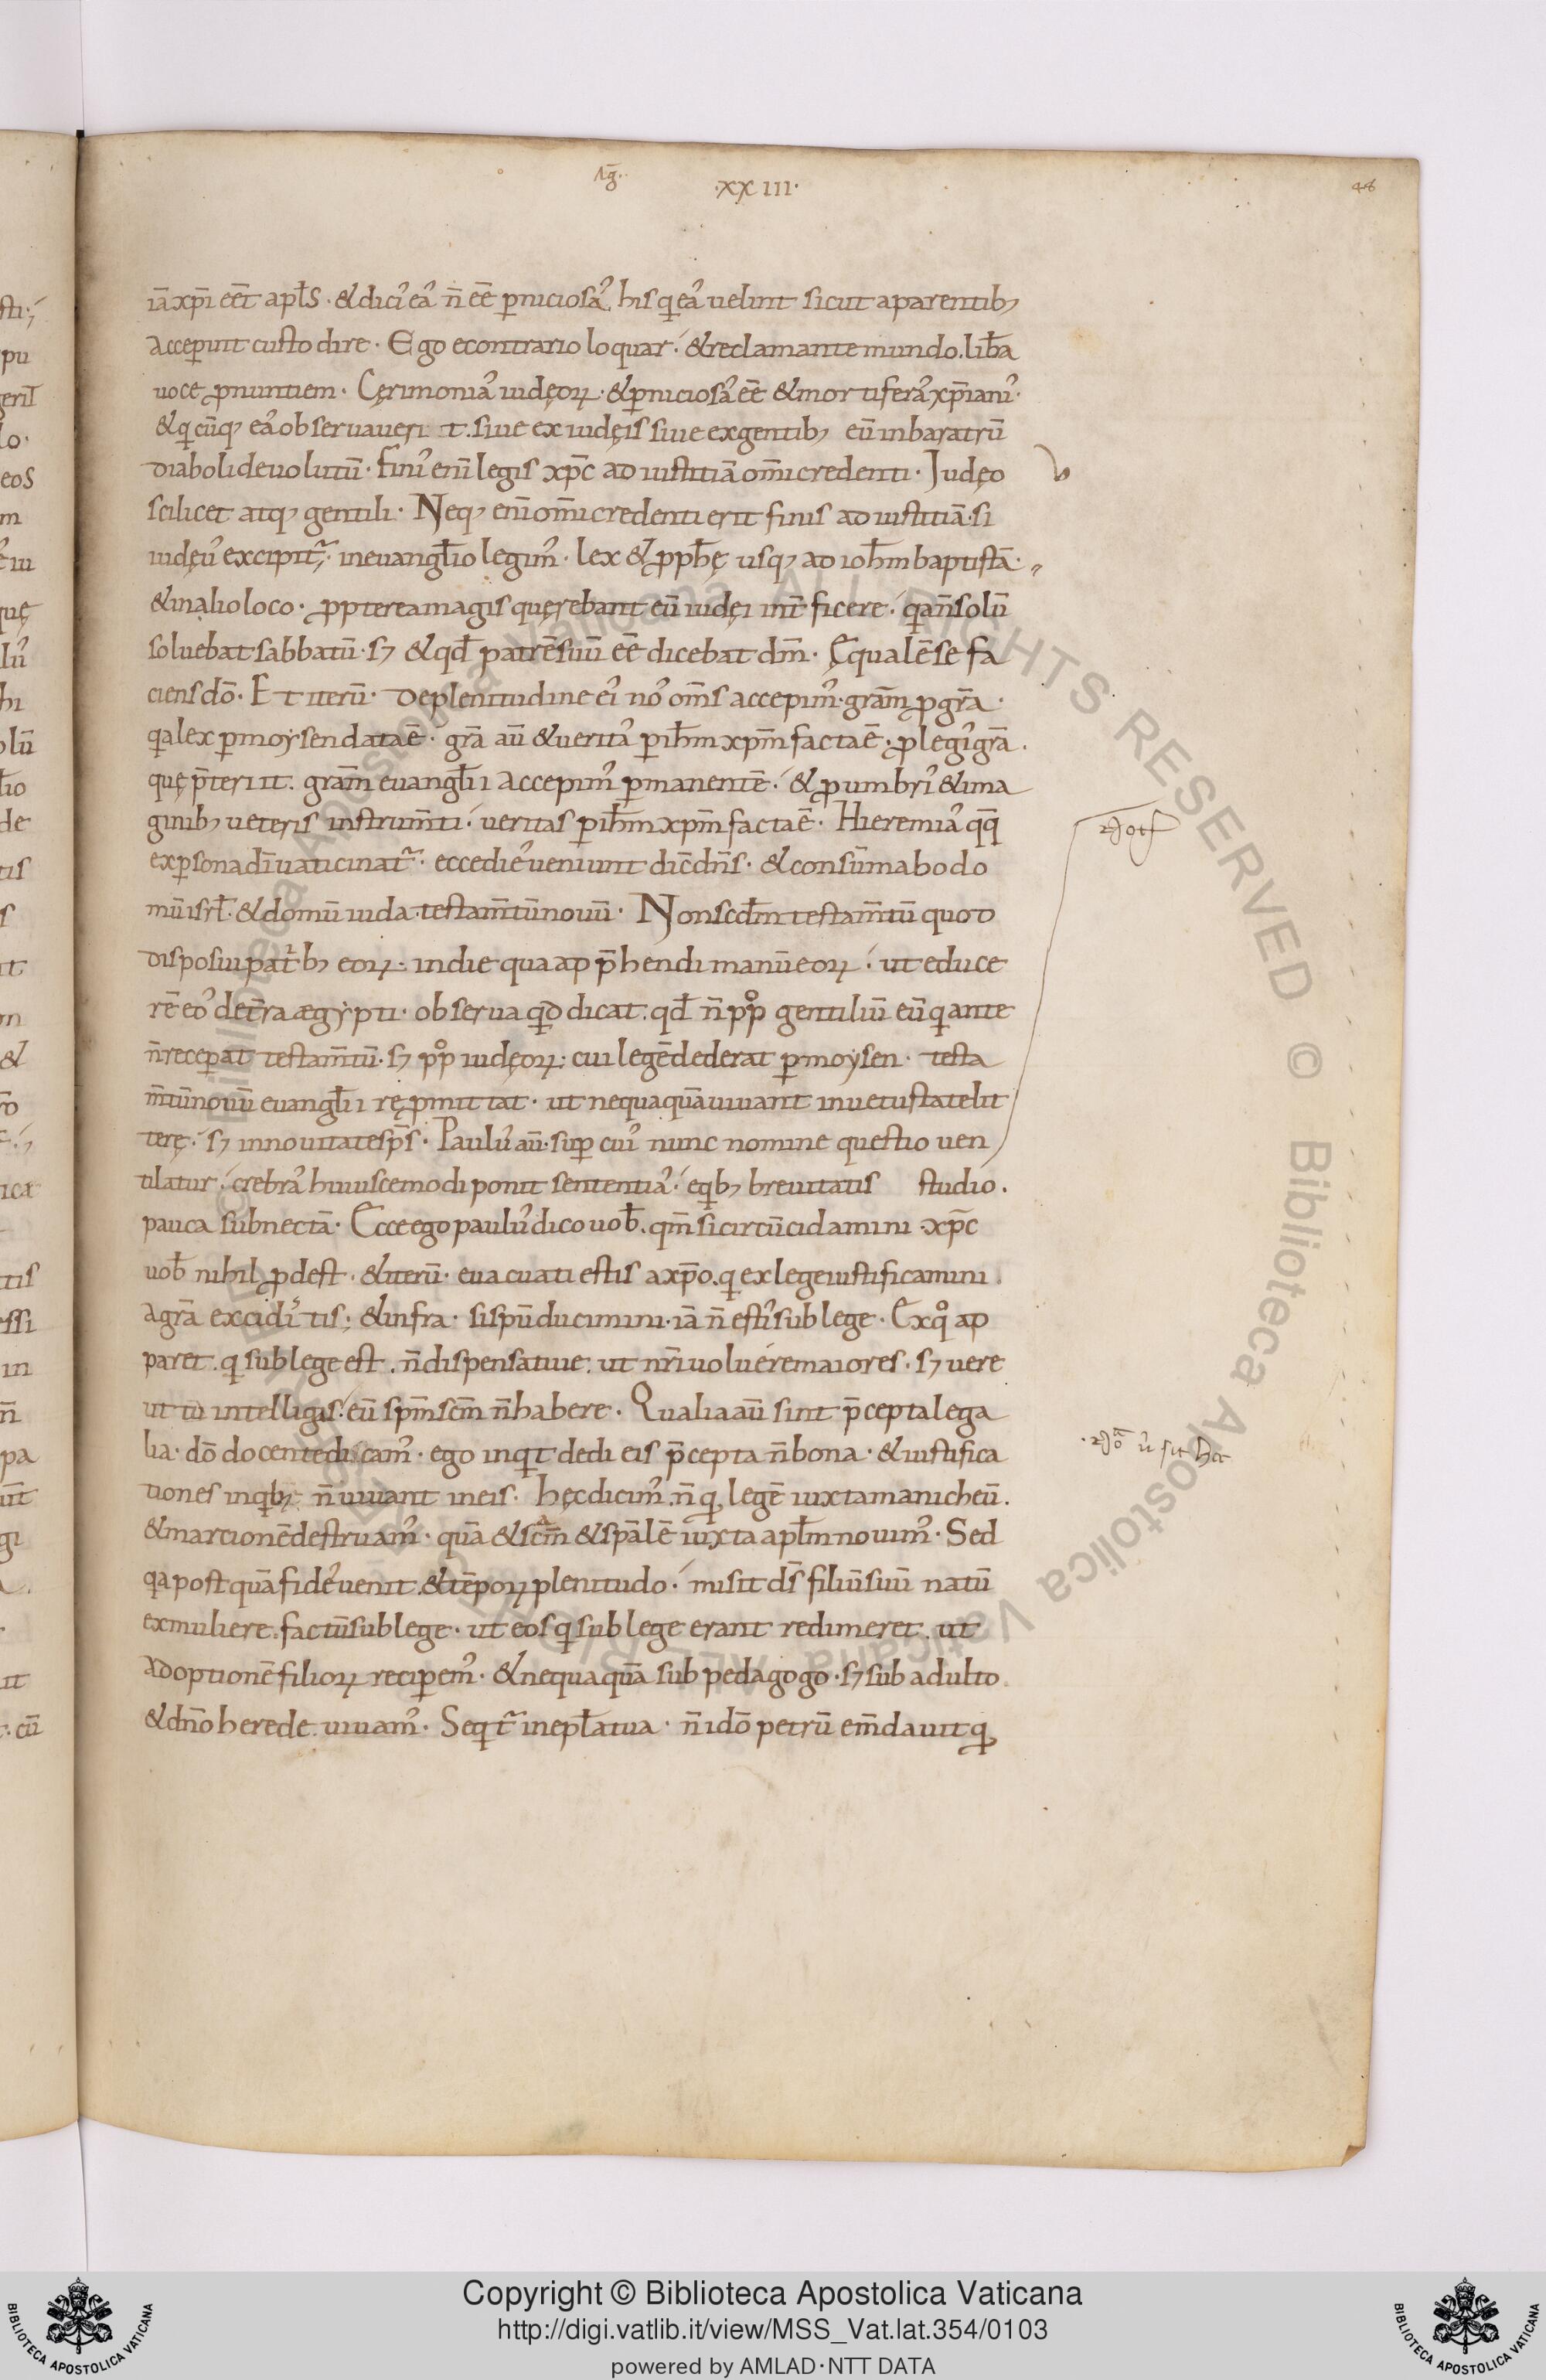 Aḡ.
·XXIII·
48
iā xp̄i eēt apłs · & dic᾽ eā᾽ n̄ eē p̱niciosā᾽ his q̱ eā᾽ uelint sicut aparentib;
acceper̄unt custodire · Ego econtrario loquar ·́ & reclamante mundo . lib̄a
uoce p̱nuntiem · Cęrimonia᾽ iudęoꝝ · & p̱niciosa᾽ eē & mortifera᾽ xp̄iani᾽ ·
& q̱cūq; ea᾽ obseruaueri t . siue ex iudęis siue exgentib; eū inbaratrū
diaboli deuolutū · Fini᾽ eni᾽ legis xp̄c ad iustitiā om̄i credenti · Iudęo
scilicet atq; gentili · Neq; eni᾽ om̄i credenti erit finis ad iustitiā · si
iudęu᾽ excipit᷑ · ineuangl̄io legim᾽ · lex & p̱ph̄ę usq; ad ioh̄m baptistā ·
& inalio loco · p̱pterea magis quęrebant eū iudęi int̄ficere ·́ q̱a n̄ solū
soluebat sabbatū · s; & qđ patrē suū eē dicebat dm̄ · Ęqualē se fa
ciens dō · Et iterū · De plenitudine ei᾽ no᾽ om̄s accepim᾽ · grām p̱ grā ·
q̱a lex p̱ moysen data ē · grā aū & uerita᾽ p̱ ih̄m xp̄m facta ē · p̱ legi᾽ grā .
quę p̄teriit . grām euangl̄ii accepim᾽ p̱manentē ·́ & p̱ umbri᾽ & ima
ginib; ueteris instrum̄ti ·́ ueritas p̱ ih̄m xp̄m facta ē · Hieremia᾽ qq̄
exp̱sona dī uaticinat᷑ · ecce die᾽ ueniunt dic̄ dn̄s · & consūmabo do
mū isrł · & domū iuda · testam̄tū nouū · Non scđm testam̄tū quod
disposui patrib; eoꝝ · indie qua app̄hendi manū eoꝝ ·́ ut educe
rē eo᾽ det̄ra ægypti · obserua qđ dicat . qđ n̄ pp̊ gentiliū eū q̱ ante
n̄ recep̱at testam̄tū · s; pp̊ iudęoꝝ · cui legē dederat p̱ moysen · testa
m̄tū nouū euangl̄ii rep̱mittat · ut nequaquā uiuant inuetustate lit
terę ·́ s; innouitate sp̄s · Paulu᾽ aū · sup̱ cui᾽ nunc nomine questio uen
tilatur ·́ crebra᾽ huiuscemodi ponit sententia᾽ ·́ eq̱b; breuitatis studio .
pauca subnectā · Ecce ego paulu᾽ dico uob̄ . qm̄ si circūcidamini xp̄c
uob̄ nihil p̱dest · & iterū · euacuati estis a xp̄o . q̱ ex lege iustificamini .
agrā excidistis ; & infra · si spū ducimini · iā n̄ esti᾽ sub lege · Ex q̊ ap
paret . q̱ sub lege est . n̄ dispensatiue . ut nr̄i uoluere maiores · s; uere
ut tu intelligis ·́ eū sp̄m sc̄m n̄ habere · Qualia aū sint p̄cepta lega
lia · dō docente discam᾽ · ego inq̱t dedi eis p̄cepta n̄ bona · & iustifica
tiones inq̱b; n̄ uiuant ineis · hęc dicim᾽ . n̄ q̱ legē iuxta manicheū .
& marcionē destruam᾽ · quā & sc̄m & spālē iuxta apłm nouim᾽ · Sed
q̱a postquā fide᾽ uenit . & tēpoꝝ plenitudo ·́ misit dś filiū suū natū
exmuliere . factū sub lege · ut eos q̱ sub lege erant redimeret . ut
adoptionē filioꝝ recip̱em᾽ · & nequaquā sub pedagogo · s; sub adulto
& dn̄o herede . uiuam᾽ · Seq̱t᷑ inep̄la tua · n̄ idō petrū em̄dauit q̱
Copyright © Biblioteca Apostolica Vaticana
http://digi.vatlib.it/view/MSS_Vat.lat.354/0103
powered by AMLAD·NTT DATA
BIBLIOTECA APOSTOLICA VATICANA
BIBLIOTECA APOSTOLICA VATICANA